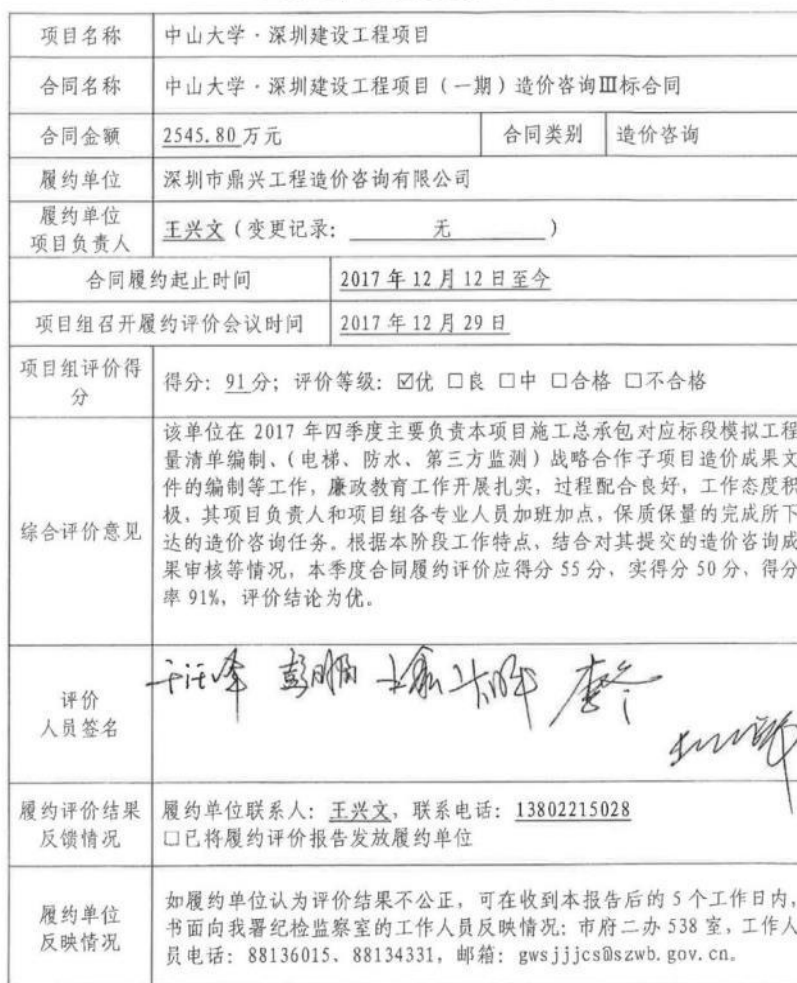 项目名称 中山大学·深圳建设工程项目
合同名称 中山大学·深圳建设工程项目(一期)造价咨询Ⅲ标合同
合同金额 2545.80万元 合同类别 造价咨询
履约单位 深圳市鼎兴工程造价咨询有限公司
履约单位
项目负责人 王兴文(变更记录: 无 )
合同履约起止时间 2017年12月12日至今
项目组召开履约评价会议时间 2017年12月29日
项目组评价得
分 得分: 91分; 评价等级: ☑优 □良 □中 □合格 □不合格
综合评价意见
该单位在 2017 年四季度主要负责本项目施工总承包对应标段模拟工程
量清单编制、(电梯、防水、第三方监测)战略合作子项目造价成果文
件的编制等工作,廉政教育工作开展扎实,过程配合良好,工作态度积
极,其项目负责人和项目组各专业人员加班加点,保质保量的完成所下
达的造价咨询任务。根据本阶段工作特点,结合对其提交的造价咨询成
果审核等情况,本季度合同履约评价应得分 55 分、实得分 50 分、得分
率 91%,评价结论为优。
评价
人员签名
履约评价结果
反馈情况
履约单位联系人: 王兴文, 联系电话: 13802215028
□已将履约评价报告发放履约单位
履约单位
反映情况
如履约单位认为评价结果不公正,可在收到本报告后的 5 个工作日内,
书面向我署纪检监察室的工作人员反映情况: 市府二办 538 室, 工作人
员电话: 88136015、88134331, 邮箱: gwsjjjcs@szwb.gov.cn。